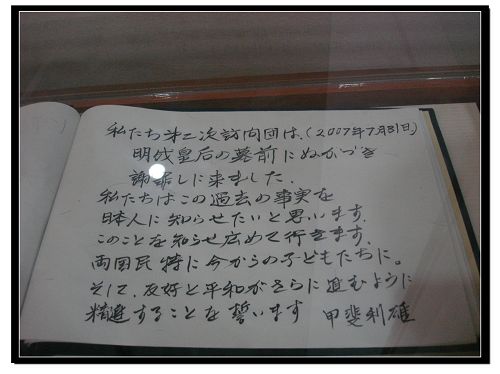 私たち第二次訪問団は、(2007年7月31日)
明成皇后の墓前にぬかづき
謝罪しに来ました.
私たちはこの過去の事実を
日本人に知らせたいと思います.
このことを知らせ広めて行きます.
両国民特に今からの子どもたちに。
そして、友好と平和がさらに進むように
精進することを誓います 甲斐利雄